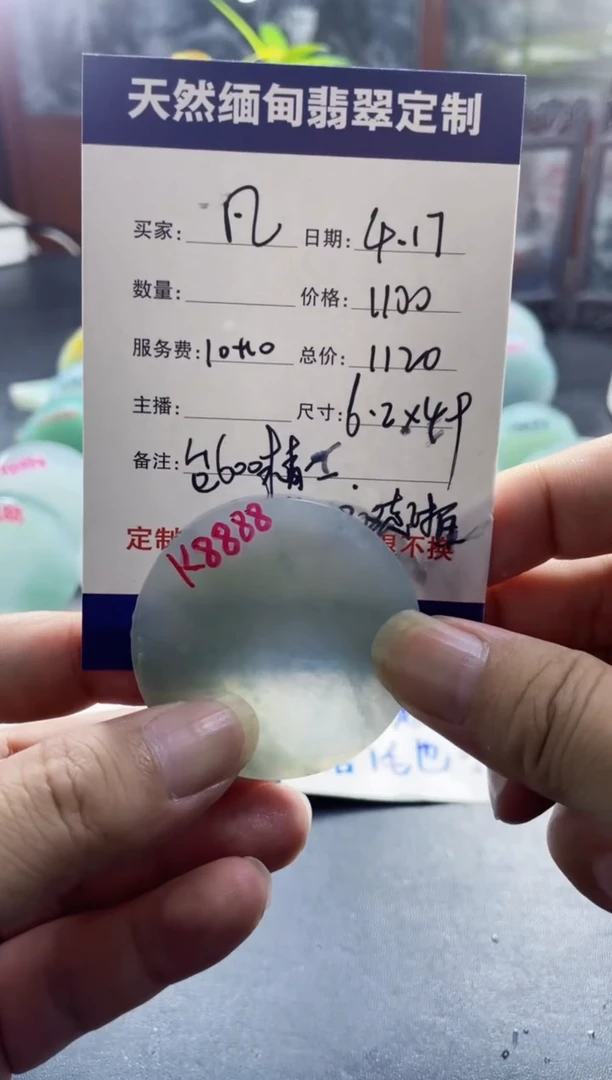 天然缅甸翡翠定制
买家: 凡 日期: 4.17
数量: 价格: 1100
服务费: 10+10 总价: 1120
主播: 尺寸: 6.2×49
备注: 包600来精工.
定制 退不换
K8888